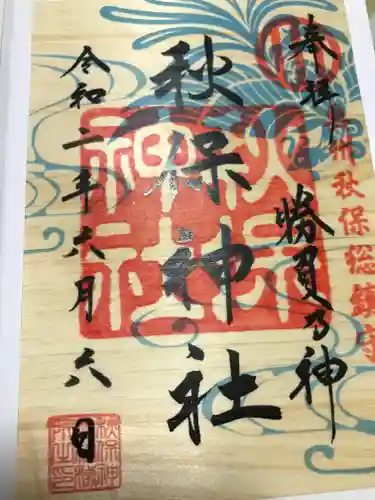 奉拝
勝負の神
秋保総鎮守
秋保神社
秋保神社
令和二年六月六日